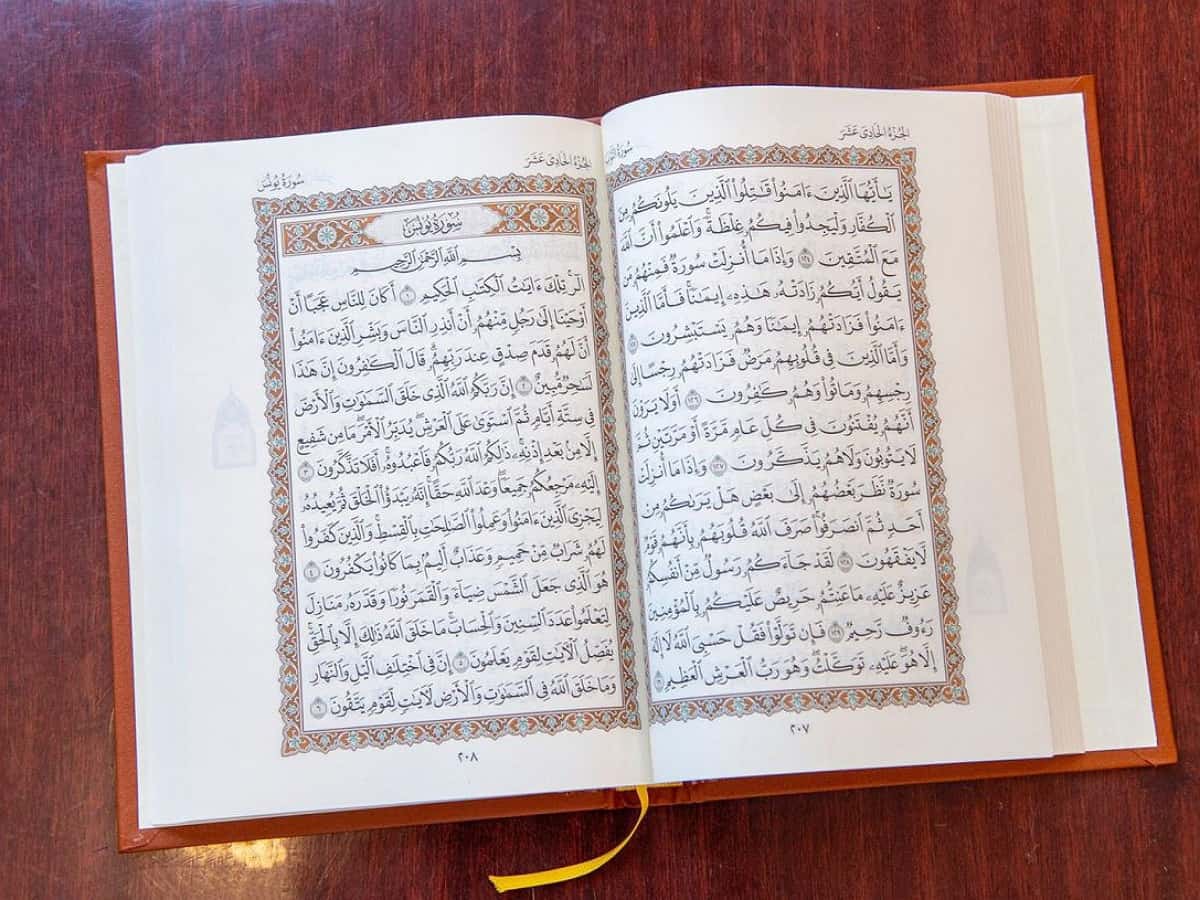 سُورَةُ التَّوْبَةِ
الجُزْءُ الحَادِي عَشَرَ
يَـٰٓأَيُّهَا ٱلَّذِينَ ءَامَنُوا۟ قَـٰتِلُوا۟ ٱلَّذِينَ يَلُونَكُم مِّنَ
ٱلْكُفَّارِ وَلْيَجِدُوا۟ فِيكُمْ غِلْظَةً ۚ وَٱعْلَمُوٓا۟ أَنَّ ٱللَّهَ
مَعَ ٱلْمُتَّقِينَ ١٢٣ وَإِذَا مَآ أُنزِلَتْ سُورَةٌ فَمِنْهُم مَّن
يَقُولُ أَيُّكُمْ زَادَتْهُ هَـٰذِهِۦٓ إِيمَـٰنًا ۚ فَأَمَّا ٱلَّذِينَ
ءَامَنُوا۟ فَزَادَتْهُمْ إِيمَـٰنًا وَهُمْ يَسْتَبْشِرُونَ ١٢٤
وَأَمَّا ٱلَّذِينَ فِى قُلُوبِهِم مَّرَضٌ فَزَادَتْهُمْ رِجْسًا إِلَىٰ
رِجْسِهِمْ وَمَاتُوا۟ وَهُمْ كَـٰفِرُونَ ١٢٥ أَوَلَا يَرَوْنَ
أَنَّهُمْ يُفْتَنُونَ فِى كُلِّ عَامٍ مَّرَّةً أَوْ مَرَّتَيْنِ ثُمَّ
لَا يَتُوبُونَ وَلَا هُمْ يَذَّكَّرُونَ ١٢٦ وَإِذَا مَآ أُنزِلَتْ
سُورَةٌ نَّظَرَ بَعْضُهُمْ إِلَىٰ بَعْضٍ هَلْ يَرَىٰكُم مِّنْ
أَحَدٍ ثُمَّ ٱنصَرَفُوا۟ ۚ صَرَفَ ٱللَّهُ قُلُوبَهُم بِأَنَّهُمْ قَوْمٌ
لَّا يَفْقَهُونَ ١٢٧ لَقَدْ جَآءَكُمْ رَسُولٌ مِّنْ أَنفُسِكُمْ
عَزِيزٌ عَلَيْهِ مَا عَنِتُّمْ حَرِيصٌ عَلَيْكُم بِٱلْمُؤْمِنِينَ
رَءُوفٌ رَّحِيمٌ ١٢٨ فَإِن تَوَلَّوْا۟ فَقُلْ حَسْبِىَ ٱللَّهُ لَآ إِلَـٰهَ
إِلَّا هُوَ ۖ عَلَيْهِ تَوَكَّلْتُ ۖ وَهُوَ رَبُّ ٱلْعَرْشِ ٱلْعَظِيمِ ١٢٩
٢٠٧
الجُزْءُ الحَادِي عَشَرَ
سُورَةُ يُونُسَ
سُورَةُ يُونُسَ
بِسْمِ ٱللَّهِ ٱلرَّحْمَـٰنِ ٱلرَّحِيمِ
الٓر ۚ تِلْكَ ءَايَـٰتُ ٱلْكِتَـٰبِ ٱلْحَكِيمِ ١ أَكَانَ لِلنَّاسِ عَجَبًا أَنْ
أَوْحَيْنَآ إِلَىٰ رَجُلٍ مِّنْهُمْ أَنْ أَنذِرِ ٱلنَّاسَ وَبَشِّرِ ٱلَّذِينَ ءَامَنُوٓا۟
أَنَّ لَهُمْ قَدَمَ صِدْقٍ عِندَ رَبِّهِمْ ۗ قَالَ ٱلْكَـٰفِرُونَ إِنَّ هَـٰذَا
لَسَـٰحِرٌ مُّبِينٌ ٢ إِنَّ رَبَّكُمُ ٱللَّهُ ٱلَّذِى خَلَقَ ٱلسَّمَـٰوَٰتِ وَٱلْأَرْضَ
فِى سِتَّةِ أَيَّامٍ ثُمَّ ٱسْتَوَىٰ عَلَى ٱلْعَرْشِ ۖ يُدَبِّرُ ٱلْأَمْرَ ۖ مَا مِن شَفِيعٍ
إِلَّا مِنۢ بَعْدِ إِذْنِهِۦ ۚ ذَٰلِكُمُ ٱللَّهُ رَبُّكُمْ فَٱعْبُدُوهُ ۚ أَفَلَا تَذَكَّرُونَ ٣
إِلَيْهِ مَرْجِعُكُمْ جَمِيعًا ۖ وَعْدَ ٱللَّهِ حَقًّا ۚ إِنَّهُۥ يَبْدَؤُا۟ ٱلْخَلْقَ ثُمَّ يُعِيدُهُۥ
لِيَجْزِىَ ٱلَّذِينَ ءَامَنُوا۟ وَعَمِلُوا۟ ٱلصَّـٰلِحَـٰتِ بِٱلْقِسْطِ ۚ وَٱلَّذِينَ كَفَرُوا۟
لَهُمْ شَرَابٌ مِّنْ حَمِيمٍ وَعَذَابٌ أَلِيمٌۢ بِمَا كَانُوا۟ يَكْفُرُونَ ٤
هُوَ ٱلَّذِى جَعَلَ ٱلشَّمْسَ ضِيَآءً وَٱلْقَمَرَ نُورًا وَقَدَّرَهُۥ مَنَازِلَ
لِتَعْلَمُوا۟ عَدَدَ ٱلسِّنِينَ وَٱلْحِسَابَ ۚ مَا خَلَقَ ٱللَّهُ ذَٰلِكَ إِلَّا بِٱلْحَقِّ ۚ
يُفَصِّلُ ٱلْـَٔايَـٰتِ لِقَوْمٍ يَعْلَمُونَ ٥ إِنَّ فِى ٱخْتِلَـٰفِ ٱلَّيْلِ وَٱلنَّهَارِ
وَمَا خَلَقَ ٱللَّهُ فِى ٱلسَّمَـٰوَٰتِ وَٱلْأَرْضِ لَـَٔايَـٰتٍ لِّقَوْمٍ يَتَّقُونَ ٦
٢٠٨